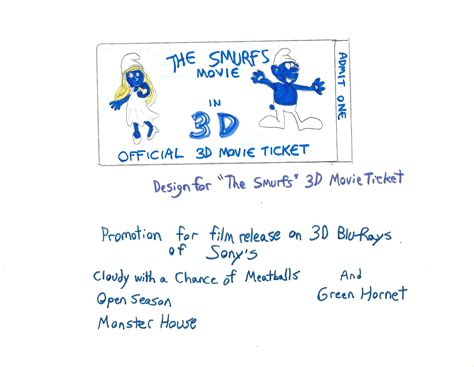 THE SMURFS
MOVIE
IN
3D
OFFICIAL 3D MOVIE TICKET
ADMIT ONE
Design for "The Smurfs" 3D Movie Ticket
Promotion for film release on 3D Blu-Rays
of Sony's
Cloudy with a Chance of Meatballs And
Open Season Green Hornet
Monster House